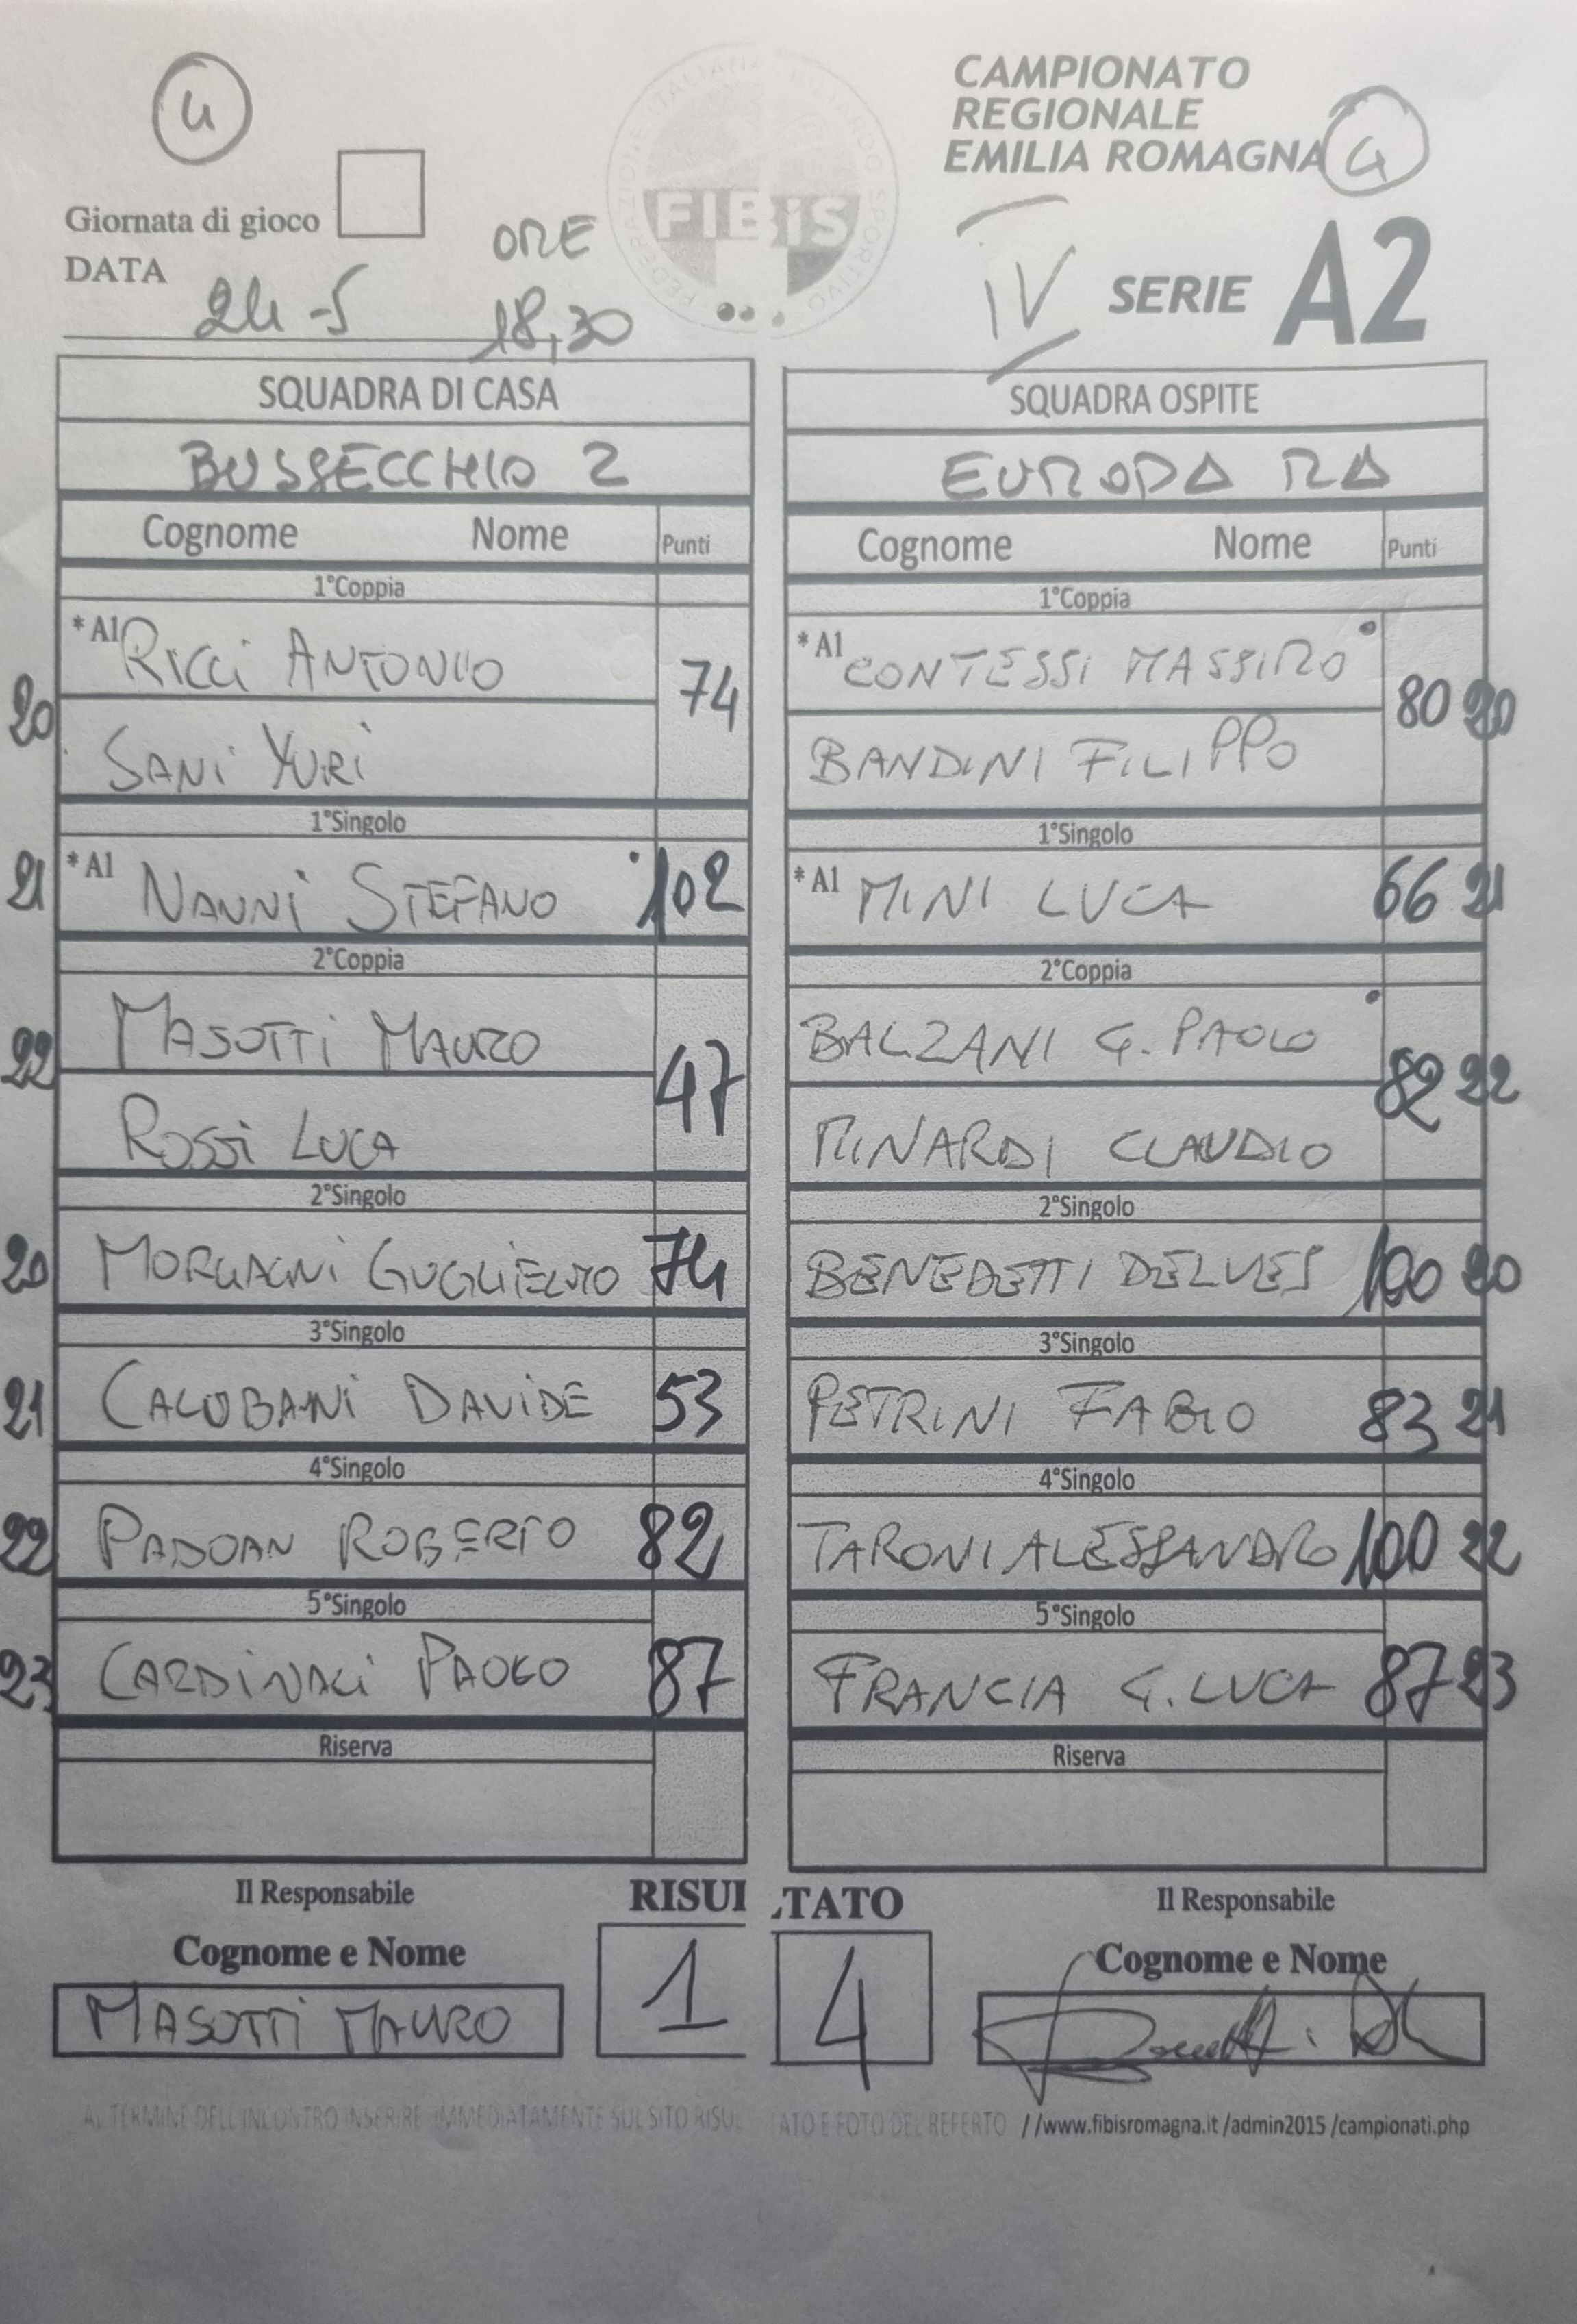 4
CAMPIONATO
REGIONALE
EMILIA ROMAGNA 4
FEDERAZIONE ITALIANA BILIARDO SPORTIVO
FIBiS
Giornata di gioco
ORE
DATA
24-5 18,30
IV SERIE A2
SQUADRA DI CASA
BUSSECCHIO 2
Cognome Nome Punti
1°Coppia
*A1 RICCI ANTONIO
20 74
SANI YURI
1°Singolo
21 *A1 NANNI STEFANO 102
2°Coppia
MASOTTI MAURO
22 47
ROSSI LUCA
2°Singolo
20 MORGAGNI GUGLIELMO 74
3°Singolo
21 DAVIDE 53
4°Singolo
22 PADOAN ROBERTO 82
5°Singolo
23 CARDINALI PAOLO 87
Riserva
SQUADRA OSPITE
EUROPA RA
Cognome Nome Punti
1°Coppia
*A1 CONTESSI MASSIMO
80 20
BANDINI FILIPPO
1°Singolo
*A1 MINI LUCA 66 21
2°Coppia
BALZANI G. PAOLO
82 22
MINARDI CLAUDIO
2°Singolo
BENEDETTI DELVES 100 20
3°Singolo
PETRINI FABIO 83 21
4°Singolo
TARONI ALESSANDRO 100 22
5°Singolo
FRANCIA G. LUCA 87 23
Riserva
Il Responsabile
Cognome e Nome
MASOTTI MAURO
RISUL TATO
1 4
Il Responsabile
Cognome e Nome
AL TERMINE DELL'INCONTRO INSERIRE IMMEDIATAMENTE SUL SITO RISUL TATO E FOTO DEL REFERTO //www.fibisromagna.it/admin2015/campionati.php